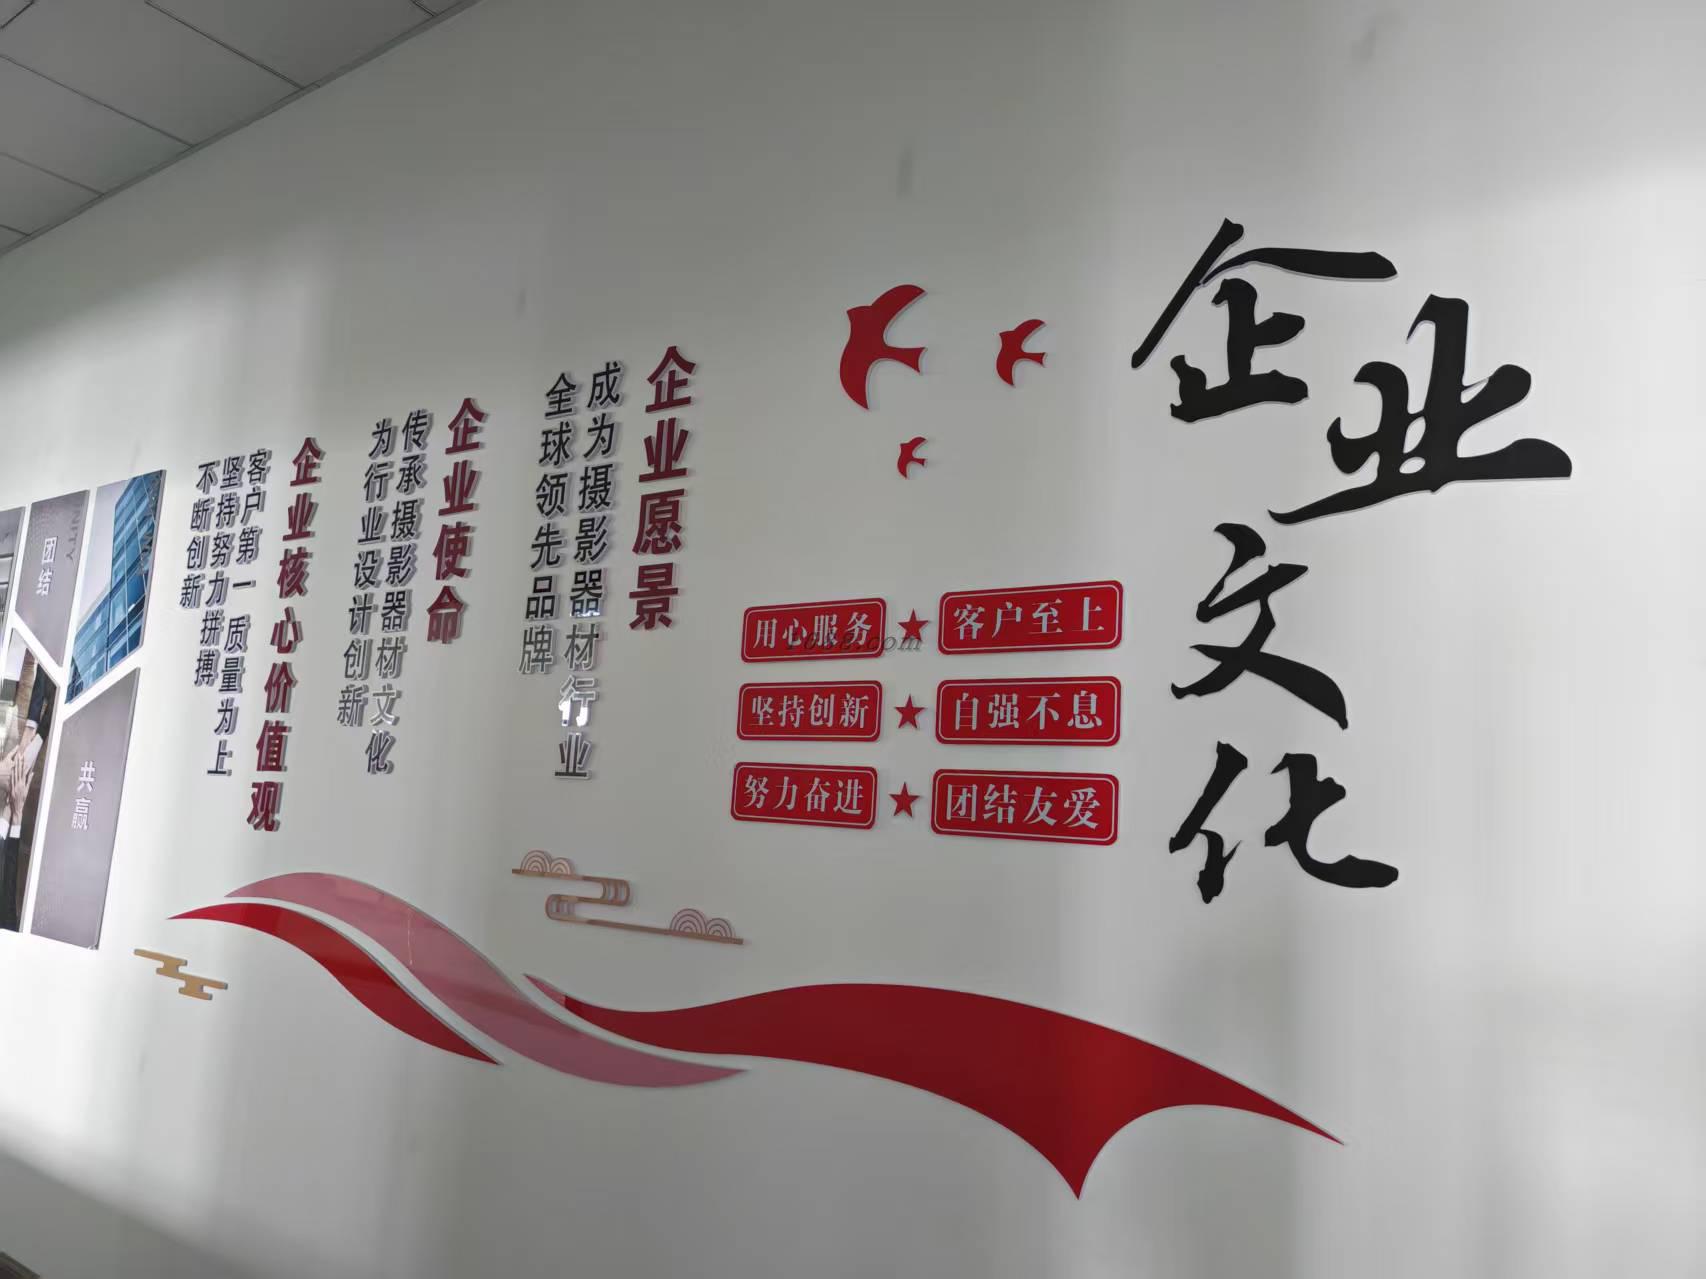 企业文化
客户至上
用心服务
自强不息
坚持创新
团结友爱
努力奋进
企业愿景
成为摄影器材行业
全球领先品牌
企业使命
传承摄影器材文化
为行业设计创新
企业核心价值观
客户第一 质量为上
坚持努力拼搏
不断创新
团结
共赢
1688.com